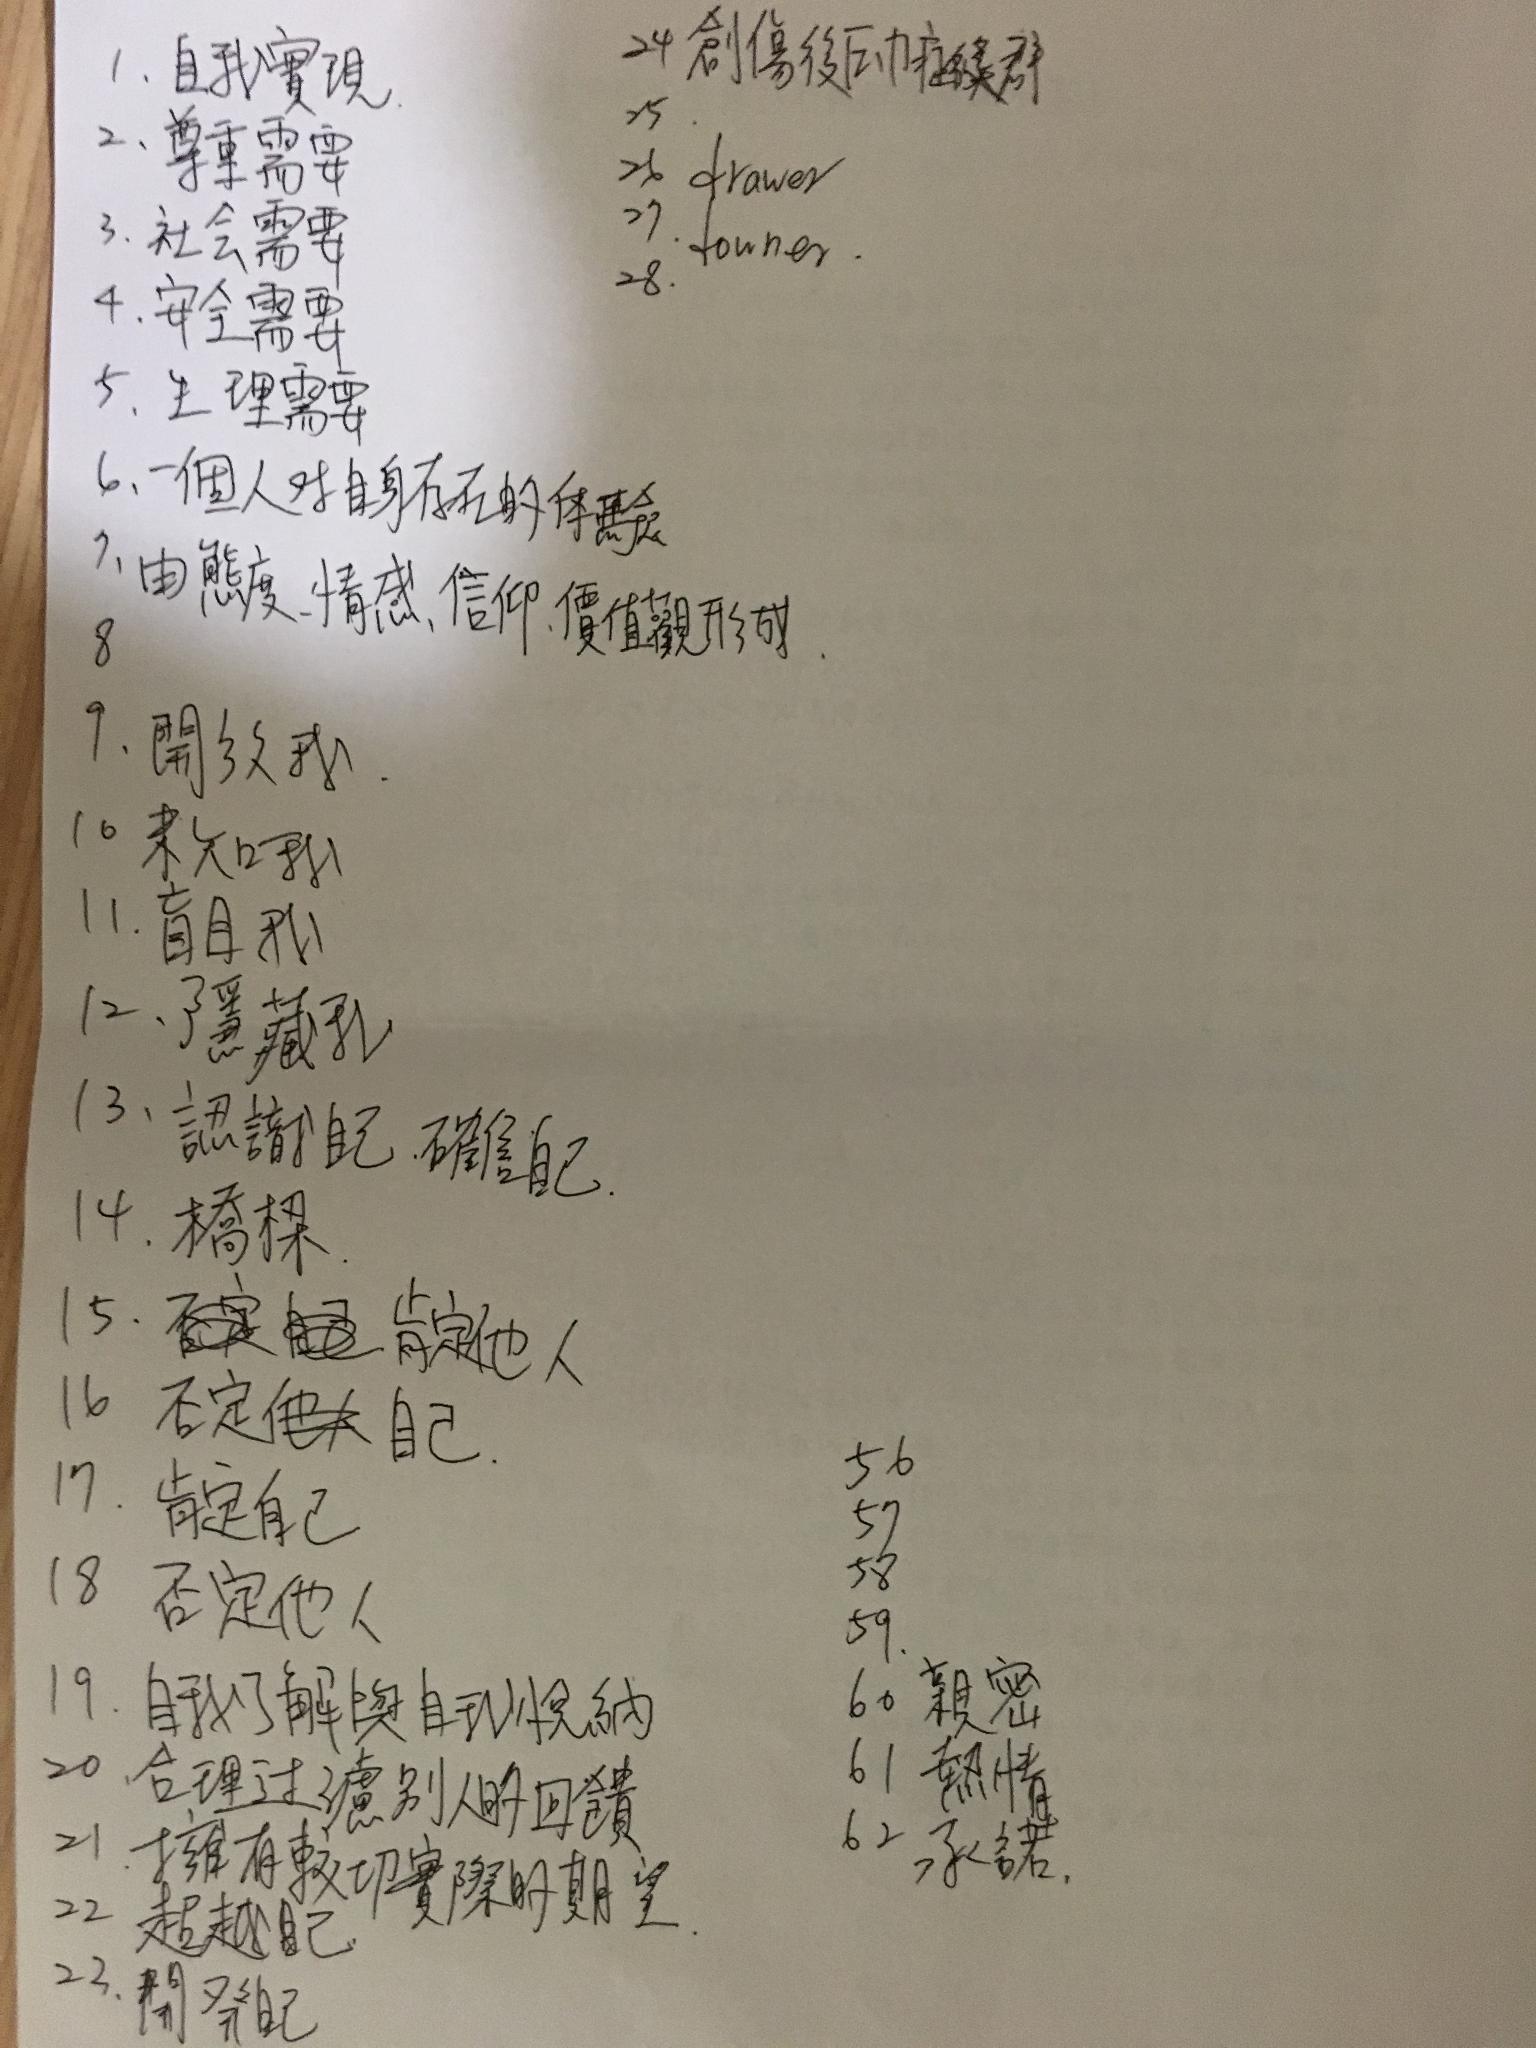 1、自我實現.
2、尊重需要
3.社会需要
4.安全需要
5、生理需要
6、一個人对自身存在的体驗
7、由態度、情感、信仰、價值觀形成.
8
9、開放我.
10 未知我
11.盲目我
12、隱藏我
13、認識自己、確信自己.
14.橋樑.
15. 肯定他人
16 否定 自己.
17.肯定自己
18 否定他人
19.自我了解與自我悅納
20.合理过濾別人的回饋
21.擁有較切實際的期望.
22 超越自己.
23.開發自己
24 創傷後压力症候群
25.
26 drawer
27. downer.
28.
56
57
58
59.
60 親密
61 熱情
62 承諾.